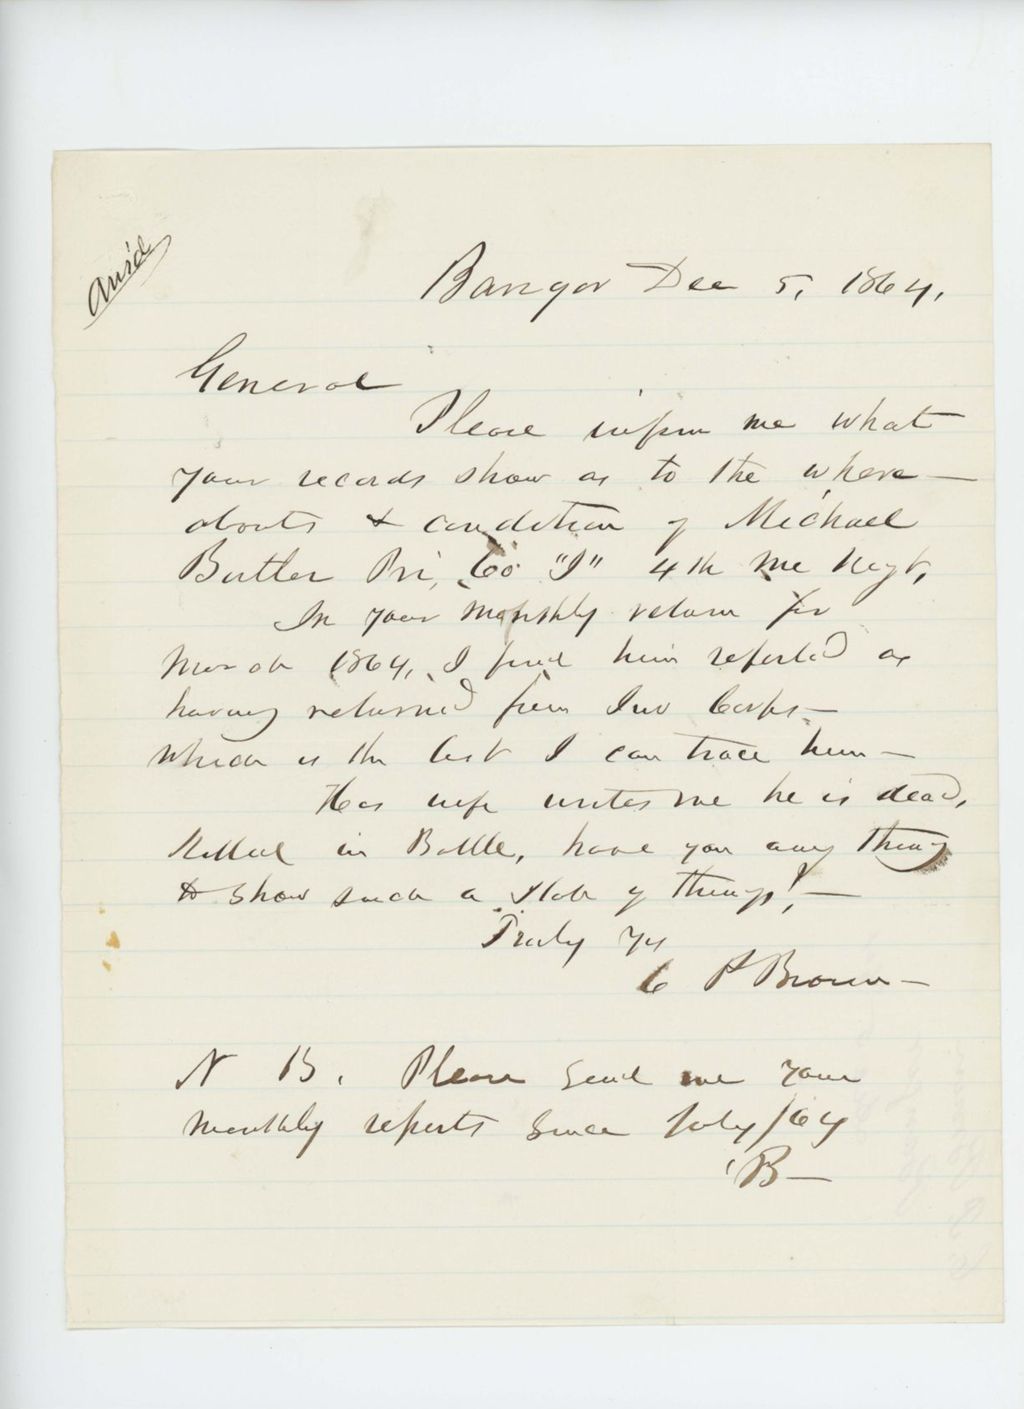 Ans'd
Bangor Dec 5, 1864,
General
Please inform me what
your records show as to the where-
abouts & condition of Michael
Butler Pri, Co "I" 4th Me Regt,
In your monthly return for
March 1864, I find him reported as
having returned from Inv Corps-
which is the last I can trace him-
His wife writes me he is dead,
killed in Battle, have you any thing
to show such a state of things?-
Truly Yrs
C P Brown-
N B. Please send me your
monthly reports since July/64
B-